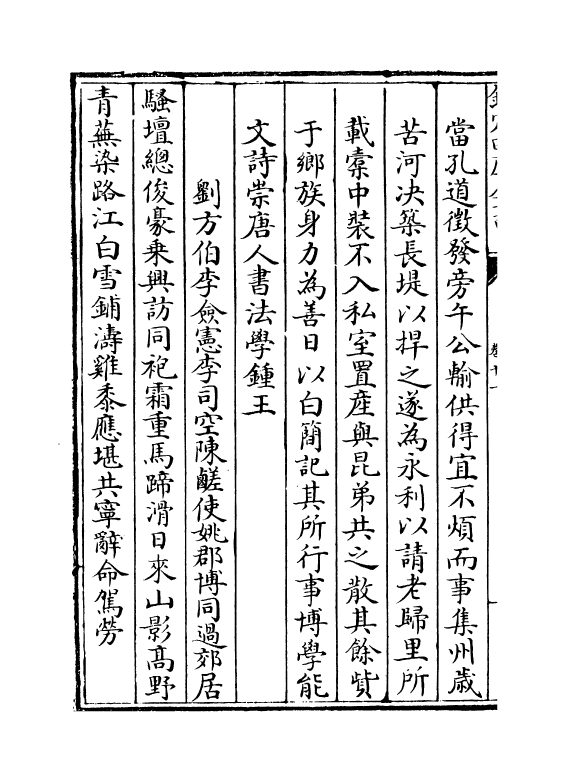 當孔道徴發旁午公輸供得宜不煩而事集州歲
苦河决築長堤以捍之遂為永利以請老歸里所
載橐中裝不入私室置産與昆弟共之散其餘貲
于鄉族身力為善日以白簡記其所行事博學能
文詩崇唐人書法學鍾王
劉方伯李僉憲李司空陳鹺使姚郡博同過郊居
騷壇總俊豪乗興訪同袍霜重馬蹄滑日來山影髙野
青蕪染路江白雪鋪濤雞黍應堪共寧辭命駕勞